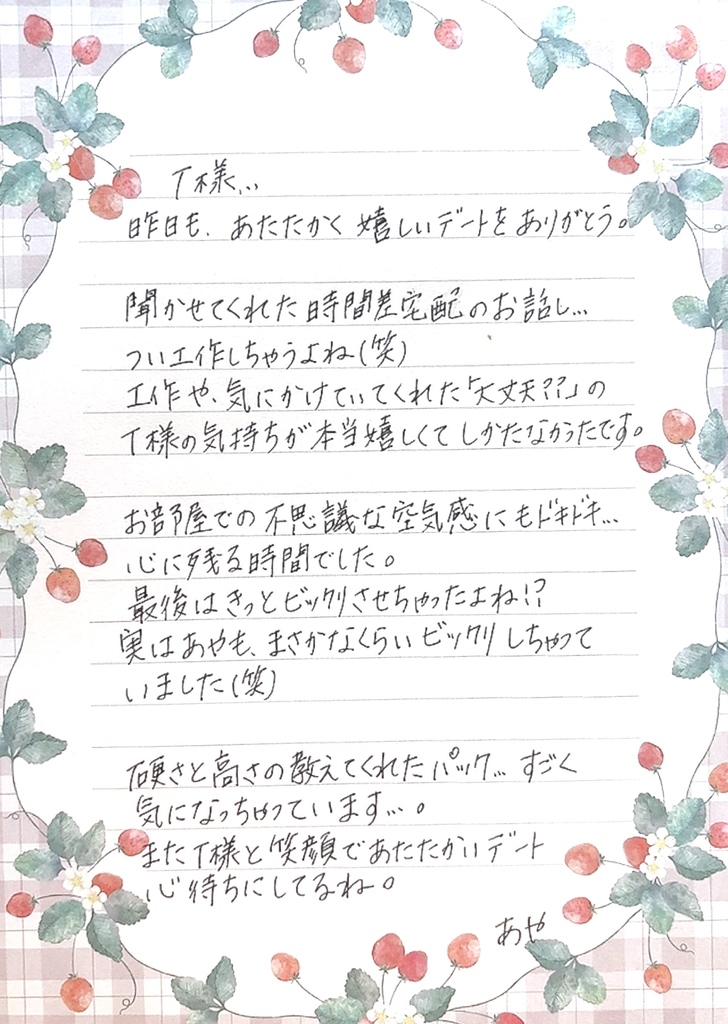 T様...
昨日も、あたたかく 嬉しいデートをありがとう。
聞かせてくれた時間差宅配のお話し...
つい工作しちゃうよね(笑)
工作や、気にかけていてくれた「大丈夫??」の
T様の気持ちが本当嬉しくてしかたなかったです。
お部屋での不思議な空気感にもドキドキ...
心に残る時間でした。
最後はきっとビックリさせちゃったよね!?
実はあやも、まさかなくらいビックリしちゃって
いました(笑)
硬さと高さの教えてくれたパック... すごく
気になっちゃっています...。
またT様と笑顔であたたかいデート
心待ちにしてるね。
あや